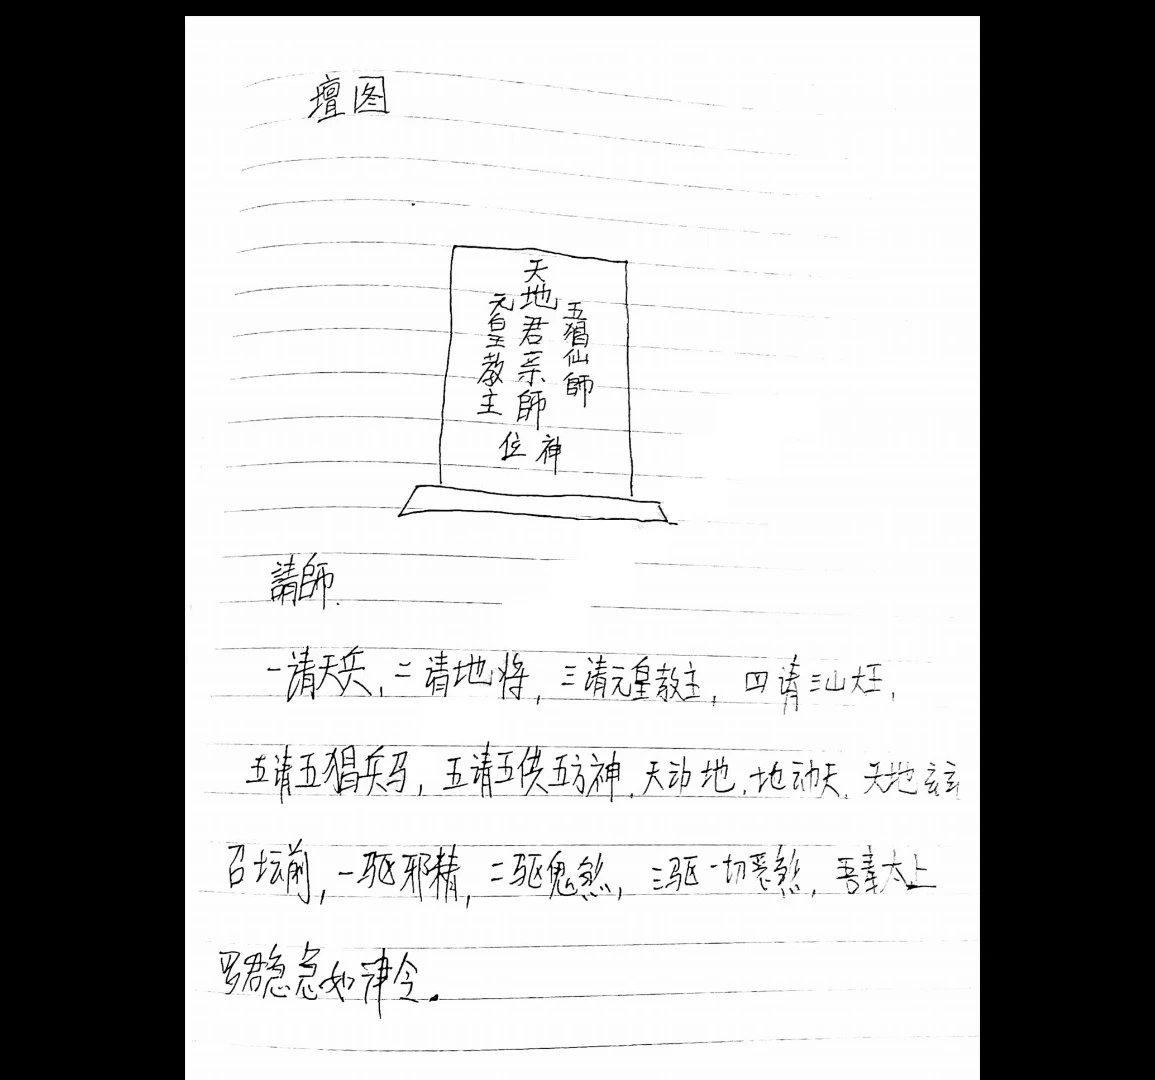 壇图
五猖仙師
天地君亲師
元皇教主
神位
請師.
一請天兵,二请地将,三请元皇教主,四请三山大王,
五请五猖兵马,五请五供五方神.天动地,地动天.天地玄玄
召坛前,一驱邪精,二驱鬼煞,三驱一切恶煞,吾奉太上
罗君急急如津令.